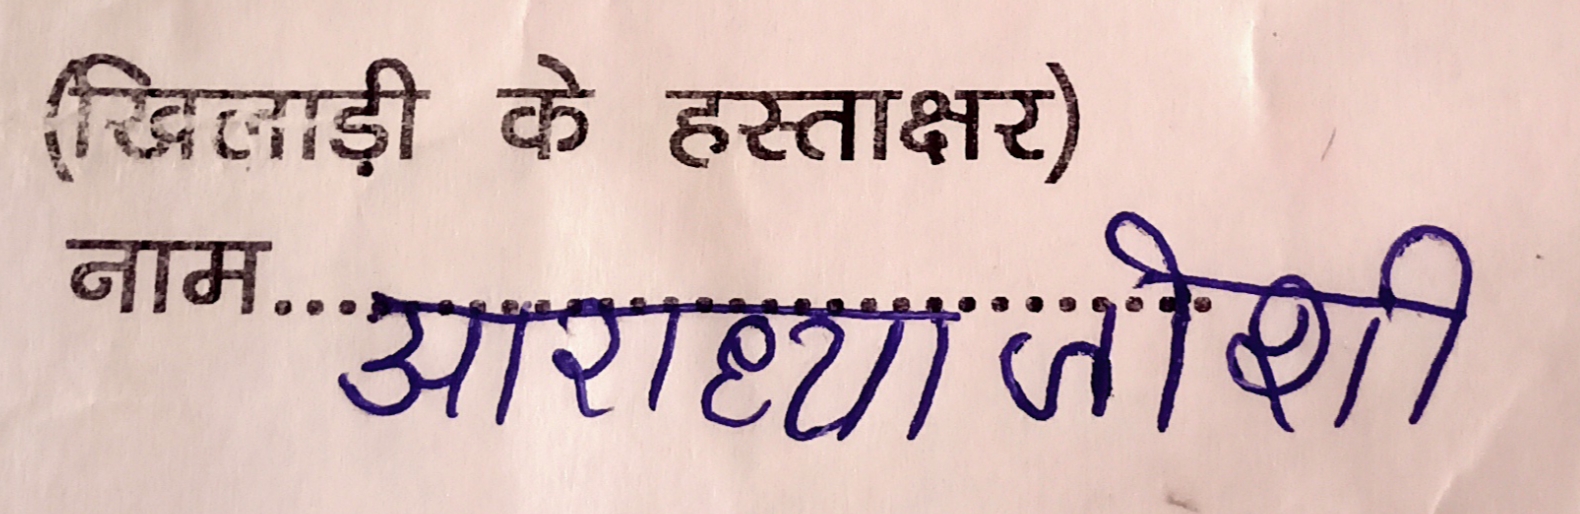 (खिलाड़ी के हस्ताक्षर)
नाम.................................आराध्या जोशी